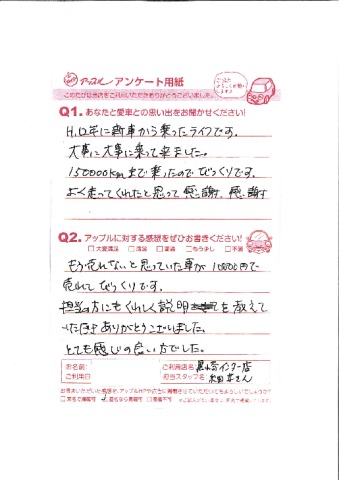 アップル アンケート用紙
このたびは当店をご利用いただきありがとうございました。
Q1. あなたと愛車との思い出をお聞かせください!
H.12年に新車から乗ったライフです。
大事に大事に乗って来ました。
150000kmまで乗ったのでびっくりです。
よく走ってくれたと思って感謝、感謝
Q2. アップルに対する感想をぜひお書きください!
□大変満足 □満足 □普通 □もう少し □不満
もう売れないと思っていた車が10000円で
売れてびっくりです。
担当の方にもくわしく説明を教えて
いただきありがとうございました。
とても感じの良い方でした。
お名前:
ご利用日
ご利用店名:
インター店
担当スタッフ名:
さん